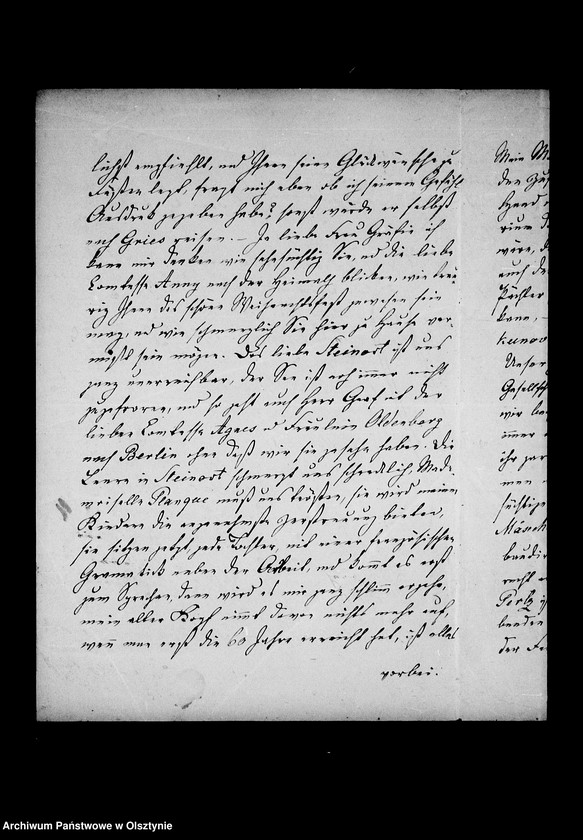 lichst empfiehlt, und Ihnen seine Glückwünsche zu
Füßen legt, fragt mich eben ob ich seinem Gefühl
Ausdruck gegeben habe? sonst würde er selbst
nach Gries reisen. – Ja liebe Frau Gräfin ich
kann mir denken wie sehnsüchtig Sie, und die liebe
Comtesse Anny nach der Heimath blicken, wie trau-
rig Ihnen das schöne Weihnachtsfest gewesen sein
mag, und wie schmerzlich Sie hier zu Hause ver-
mißt sein mögen. Das liebe Steinort ist uns
ganz unerreichbar, der See ist noch immer nicht
zugefroren, und so geht auch Herr Graf mit der
lieben Comtesse Agnes u Fräulein Oldenberg
nach Berlin ohne daß wir sie gesehn haben. Die
Leere in Steinort schmerzt uns schrecklich, Made-
moiselle Planque muß uns trösten, sie wird meinen
Kindern die angenehmste Zerstreuung bieten,
sie sitzen jetzt jede Tochter, mit einer französischen
Gramatick neben der Arbeit, und kommt es erst
zum Sprechen, dann wird es mir ganz schlimm ergehn,
mein alter Kopf nimmt davon nichts mehr auf,
wenn man erst die 60 Jahre erreicht hat, ist alles
vorbei.
Mein
den
Hand
wäre,
auch
Pächter
kann,
Unser
Gesellsch
wir
immer
ihr
man
recht
der
Archiwum Państwowe w Olsztynie